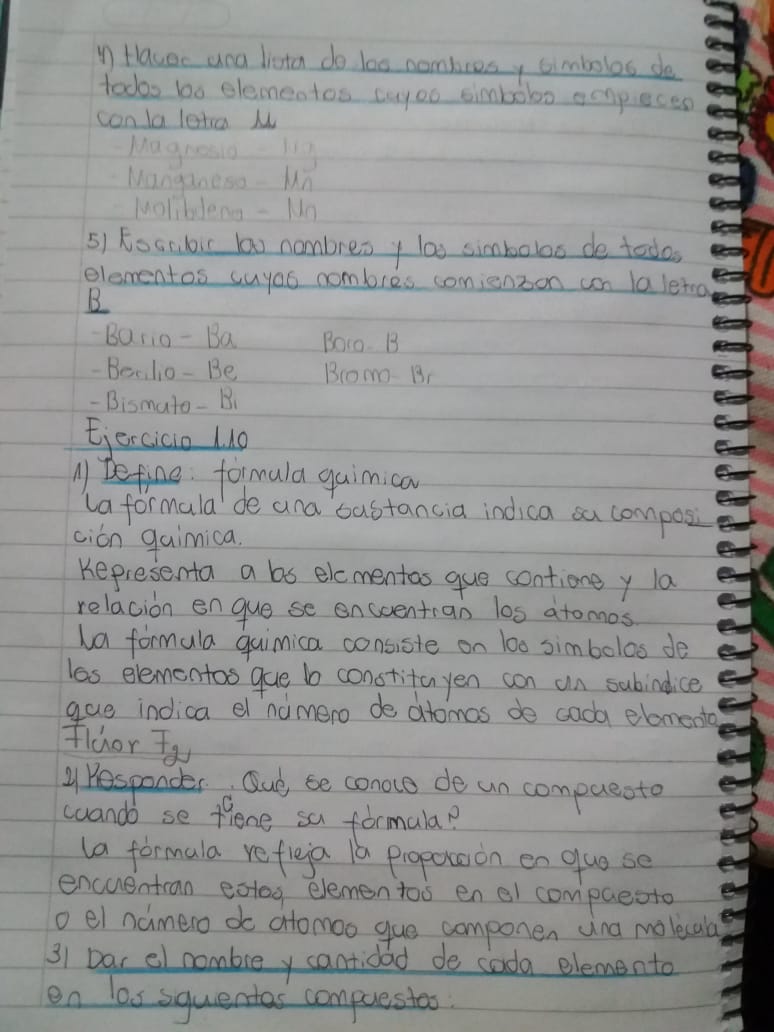 4) Hacer una lista de los nombres y simbolos de
todos los elementos cuyos simbolos empiecen
con la letra M
- Magnesio - Mg
- Manganeso - Mn
- Molibdeno - Mn
5) Escribir los nombres y los simbolos de todos
elementos cuyos nombres comienzan con la letra
B
- Bario - Ba Boro - B
- Berilio - Be Bromo - Br
- Bismuto - Bi
Ejercicio 1.10
1) Define: fórmula quimica
La fórmula de una sustancia indica su composi
ción quimica.
Representa a los elementos que contiene y la
relación en que se encuentran los átomos.
La fórmula quimica consiste en los simbolos de
los elementos que lo constituyen con un subindice
que indica el número de átomos de cada elemento
Flúor F2
2) Responder. Qué se conoce de un compuesto
cuando se tiene su fórmula?
La fórmula refleja la proporción en que se
encuentran estos elementos en el compuesto
o el número de atomos que componen una molécula
3) Dar el nombre y cantidad de cada elemento
en los siguientes compuestos: